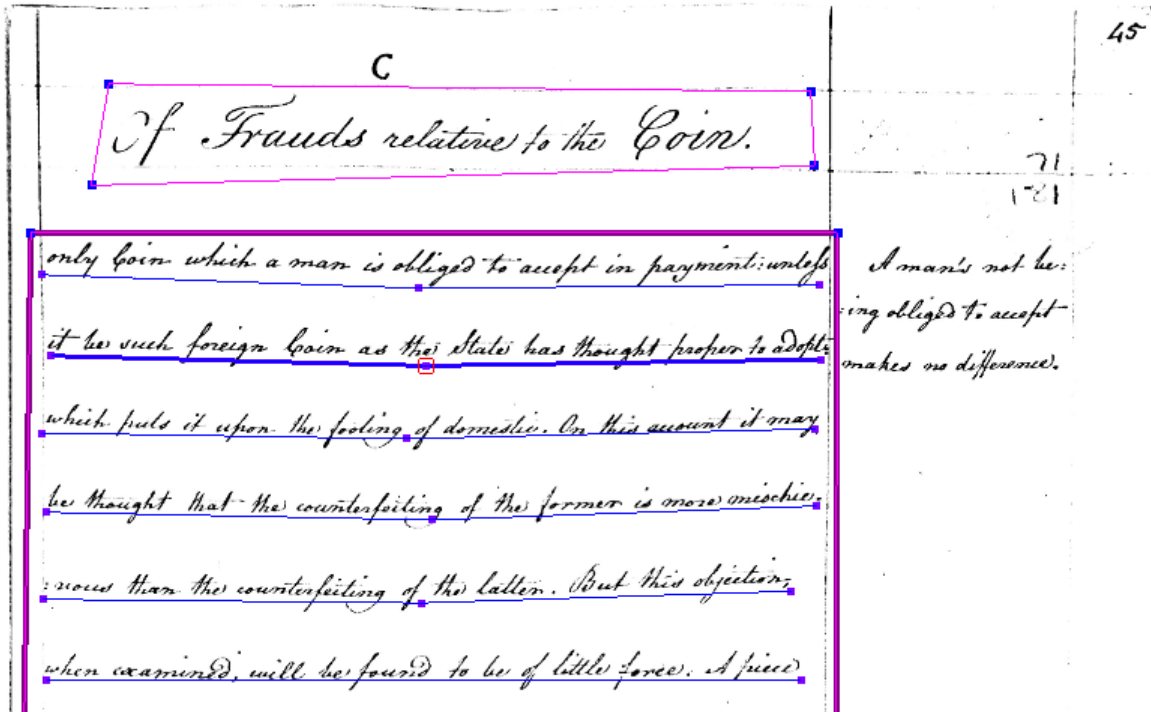 45
C
Of Frauds relative to the Coin.
71
181
only Coin which a man is obliged to accept in payment: unless
it be such foreign Coin as the State has thought proper to adopt:
which puts it upon the footing of domestic. On this account it may
be thought that the counterfeiting of the former is more mischie.
:vous than the counterfeiting of the latter. But this objection,
when examined, will be found to be of little force. A piece
A man's not be:
:ing obliged to accept
makes no difference.